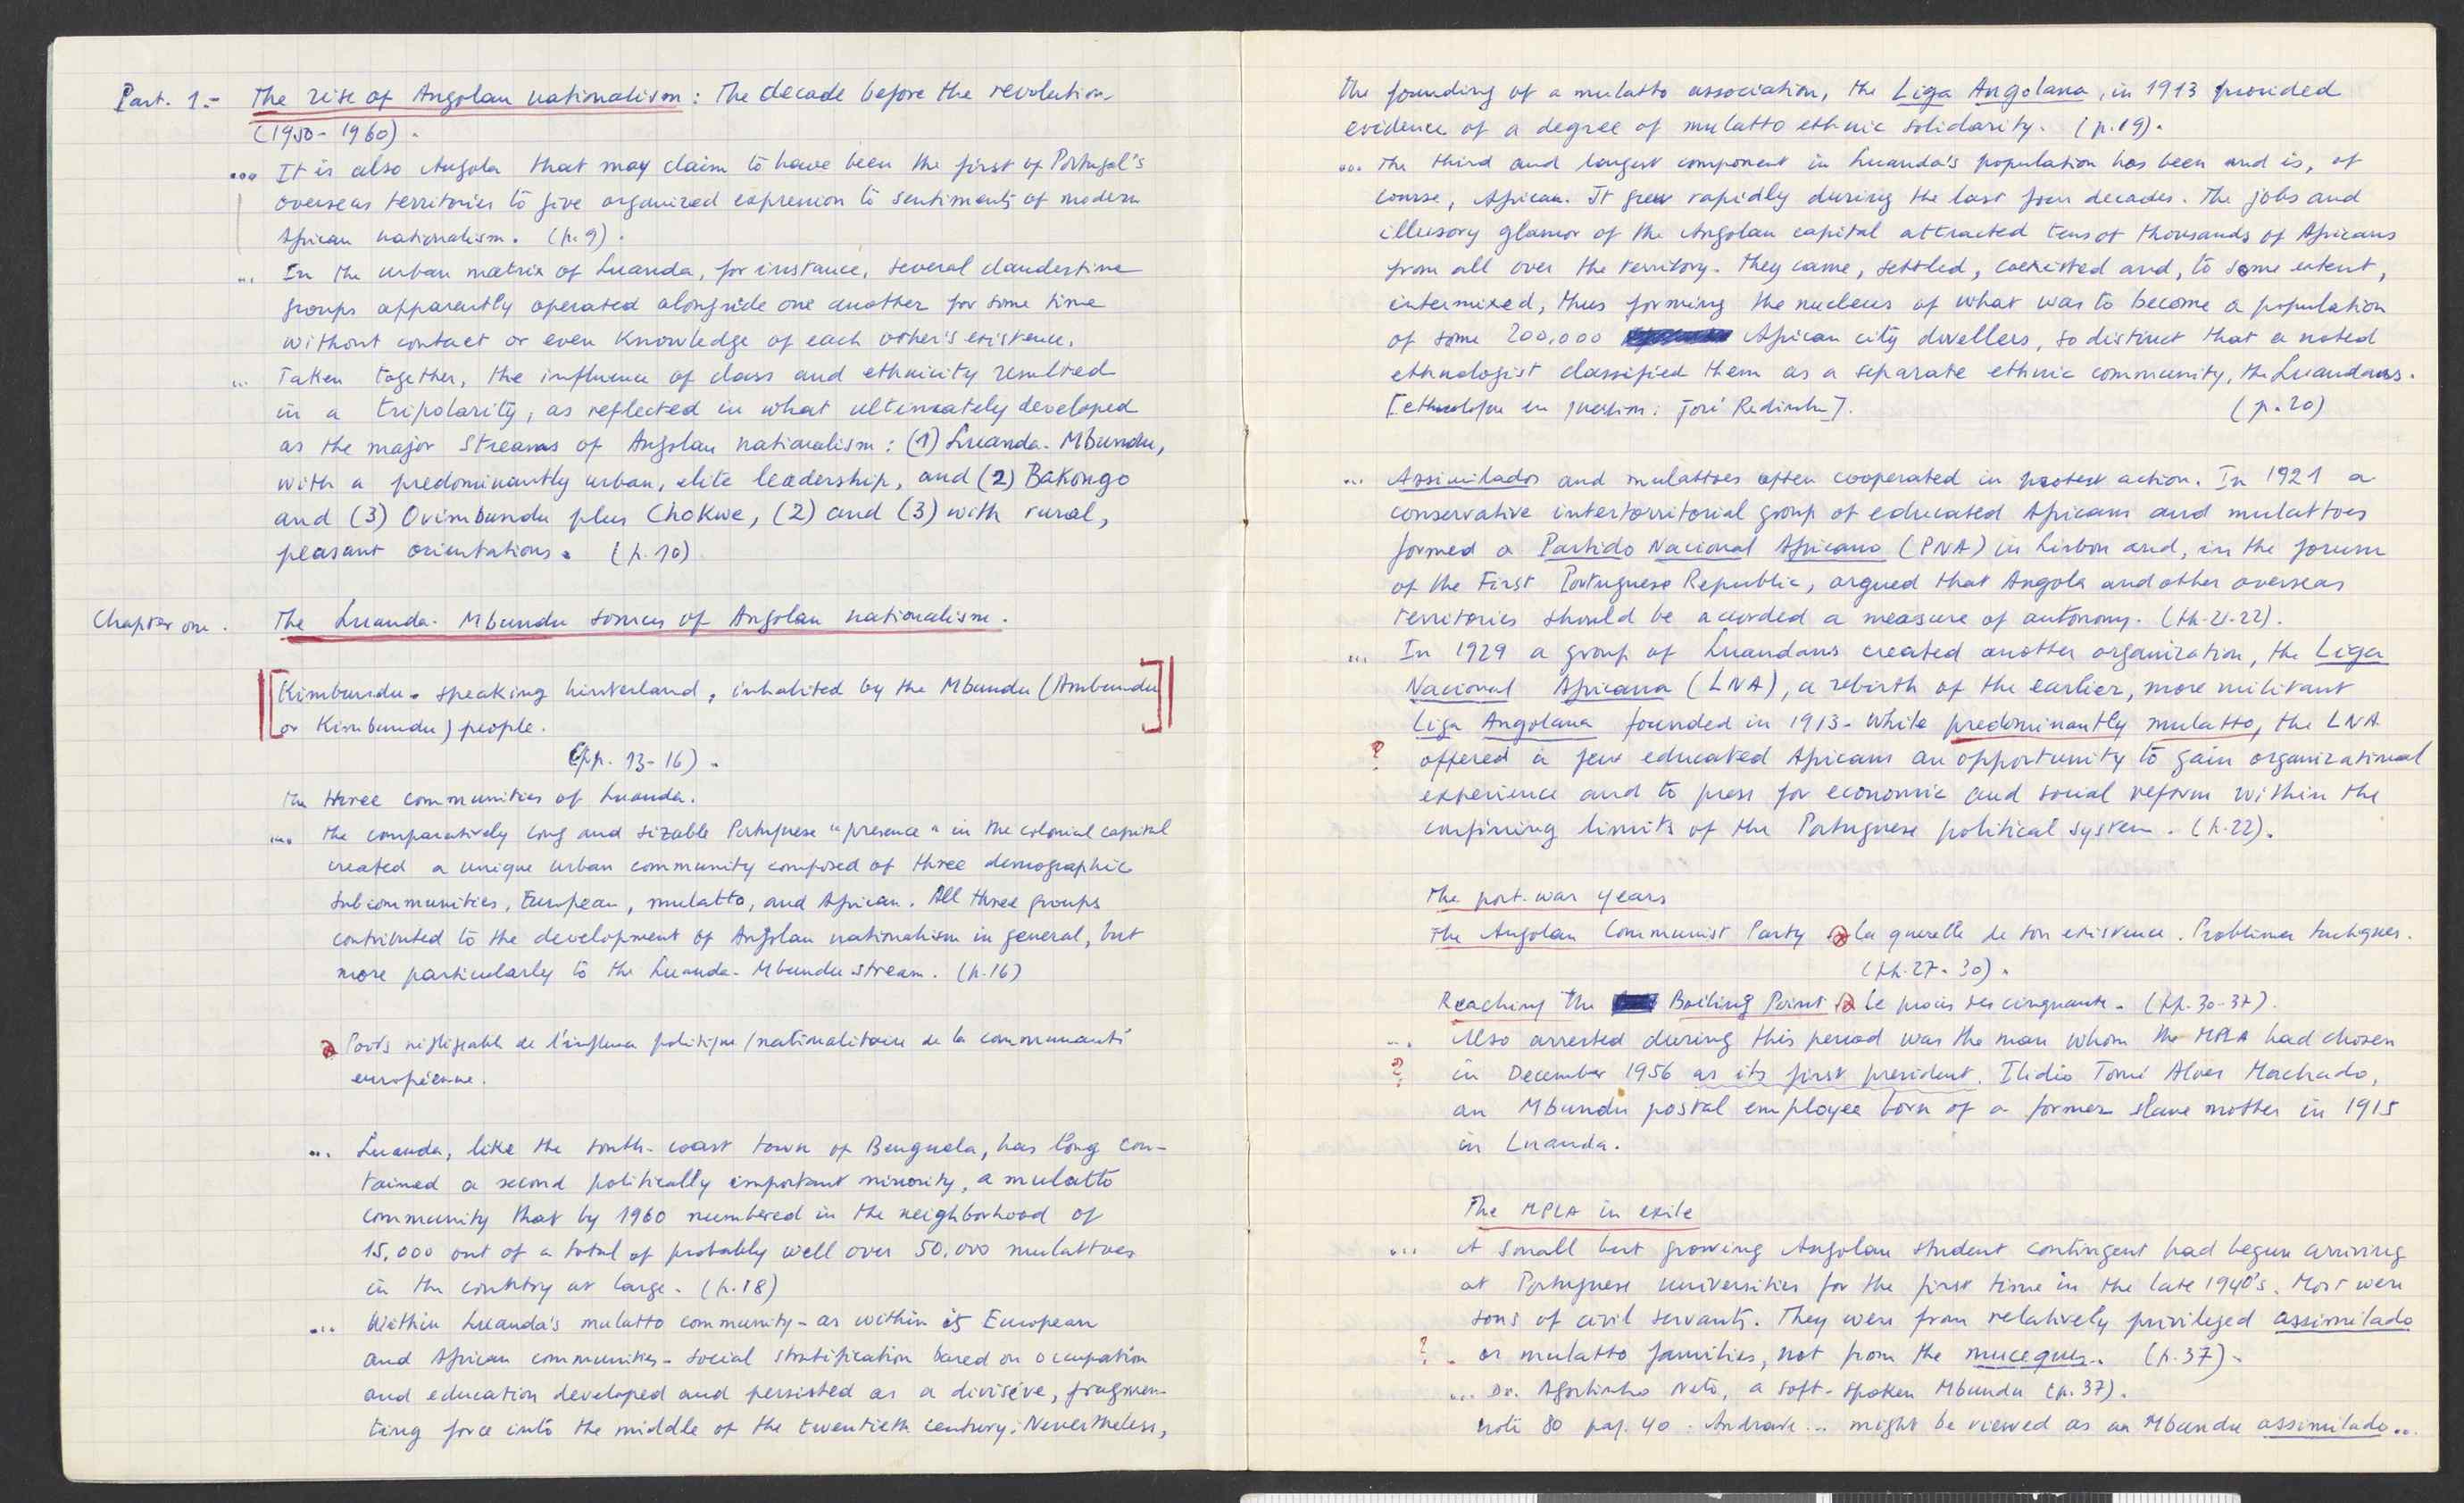 Part. 1.- The rise of Angolan nationalism : The decade before the revolution.
(1950-1960).
... It is also Angola that may claim to have been the first of Portugal's
overseas territories to give organized expression to sentiments of modern
African nationalism. (p. 9).
... In the urban matrix of Luanda, for instance, several clandestine
groups apparently operated alongside one another for some time
without contact or even knowledge of each other's existence.
... Taken together, the influence of class and ethnicity resulted
in a tripolarity, as reflected in what ultimately developed
as the major streams of Angolan nationalism : (1) Luanda-Mbundu,
with a predominantly urban, elite leadership, and (2) Bakongo
and (3) Ovimbundu plus Chokwe, (2) and (3) with rural,
peasant orientations. (p. 10)
Chapter one. The Luanda-Mbundu sources of Angolan nationalism.
[Kimbundu-speaking hinterland, inhabited by the Mbundu (Ambundu
or Kimbundu) people.]
(pp. 13-16).
The three communities of Luanda.
... the comparatively long and sizable Portuguese "presence" in the colonial capital
created a unique urban community composed of three demographic
subcommunities, European, mulatto, and African. All three groups
contributed to the development of Angolan nationalism in general, but
more particularly to the Luanda-Mbundu stream. (p. 16)
Poids négligeable de l'influence politique/nationalitaire de la communauté
européenne.
... Luanda, like the south-coast town of Benguela, has long con-
tained a second politically important minority, a mulatto
community that by 1960 numbered in the neighborhood of
15,000 out of a total of probably well over 50,000 mulattoes
in the country at large. (p. 18)
... Within Luanda's mulatto community - as within its European
and African communities - social stratification based on occupation
and education developed and persisted as a divisive, fragmen-
ting force into the middle of the twentieth century. Nevertheless,
the founding of a mulatto association, the Liga Angolana, in 1913 provided
evidence of a degree of mulatto ethnic solidarity. (p. 19).
... the third and largest component in Luanda's population has been and is, of
course, African. It grew rapidly during the last four decades. The jobs and
illusory glamor of the Angolan capital attracted tens of thousands of Africans
from all over the territory. They came, settled, coexisted and, to some extent,
intermixed, thus forming the nucleus of what was to become a population
of some 200,000 African city dwellers, so distinct that a noted
ethnologist classified them as a separate ethnic community, the Luandans.
[ethnologue en question : José Redinha]. (p. 20)
... Assimilados and mulattoes often cooperated in protest action. In 1921 a
conservative interterritorial group of educated Africans and mulattoes
formed a Partido Nacional Africano (PNA) in Lisbon and, in the forum
of the First Portuguese Republic, argued that Angola and other overseas
territories should be accorded a measure of autonomy. (pp. 21-22).
... In 1929 a group of Luandans created another organization, the Liga
Nacional Africana (LNA), a rebirth of the earlier, more militant
Liga Angolana founded in 1913. While predominantly mulatto, the LNA
? offered a few educated Africans an opportunity to gain organizational
experience and to press for economic and social reform within the
confining limits of the Portuguese political system. (p. 22).
The post-war years
The Angolan Communist Party La querelle de son existence. Problèmes tactiques.
(pp. 27-30).
Reaching the Boiling Point Le procès des cinquante. (pp. 30-37).
... Also arrested during this period was the man whom the MPLA had chosen
? in December 1956 as its first president. Ilidio Tomé Alves Machado,
an Mbundu postal employee born of a former slave mother in 1915
in Luanda.
The MPLA in exile
... A small but growing Angolan student contingent had begun arriving
at Portuguese universities for the first time in the late 1940's. Most were
sons of civil servants. They were from relatively privileged assimilado
? . or mulatto families, not from the muceques. (p. 37).
... Dr. Agostinho Neto, a soft-spoken Mbundu (p. 37).
note 80 pag. 40 : Andrade... might be viewed as an Mbundu assimilado...